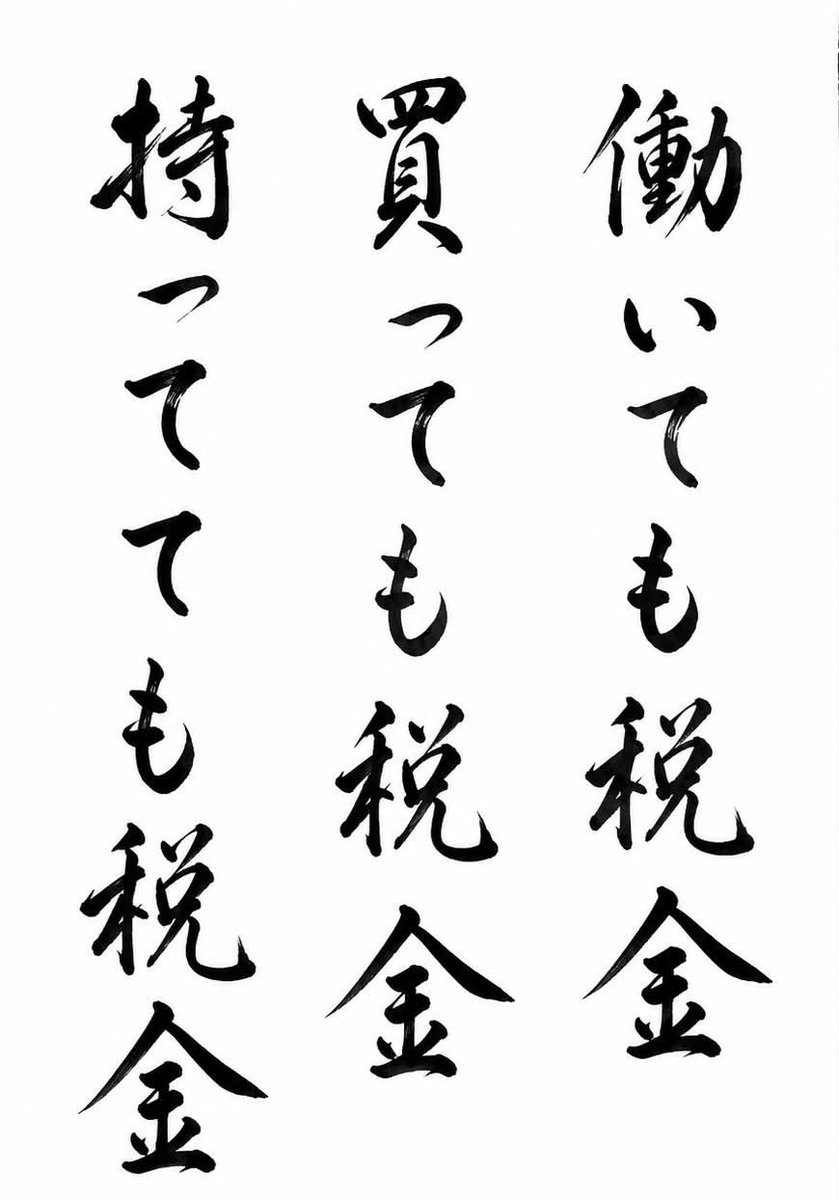 働いても税金
買っても税金
持ってても税金